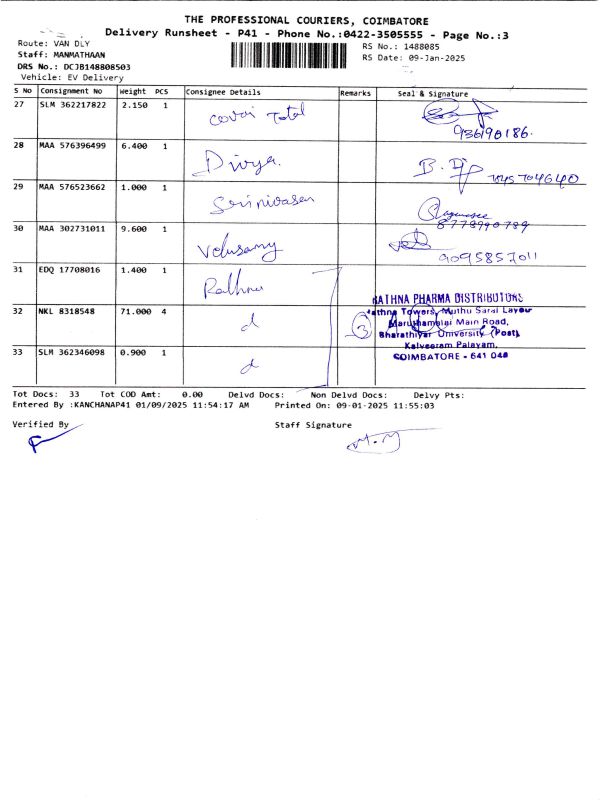 THE PROFESSIONAL COURIERS, COIMBATORE
Delivery Runsheet - P41 - Phone No.:0422-3505555 - Page No.:3
Route: VAN DLY
Staff: MANMATHAAN
DRS No.: DCJB148808503
Vehicle: EV Delivery
RS No.: 1488085
RS Date: 09-Jan-2025
S No Consignment No Weight PCS Consignee Details Remarks Seal & Signature
27 SLM 362217822 2.150 1 covai Total
936190186.
28 MAA 576396499 6.400 1 Divya.
29 MAA 576523662 1.000 1 Srinivasan
8778990789
30 MAA 302731011 9.600 1 Velusamy
9095857011
31 EDQ 17708016 1.400 1 Rathna
32 NKL 8318548 71.000 4 d
33 SLM 362346098 0.900 1 d
3
RATHNA PHARMA DISTRIBUTORS
Rathna Towers, Muthu Sarai Layour
Maruthamalai Main Road,
Bharathiyar University (Post),
Kalveeram Palayam,
COIMBATORE - 641 046
Tot Docs: 33 Tot COD Amt: 0.00 Delvd Docs: Non Delvd Docs: Delvy Pts:
Entered By :KANCHANAP41 01/09/2025 11:54:17 AM Printed On: 09-01-2025 11:55:03
Verified By Staff Signature